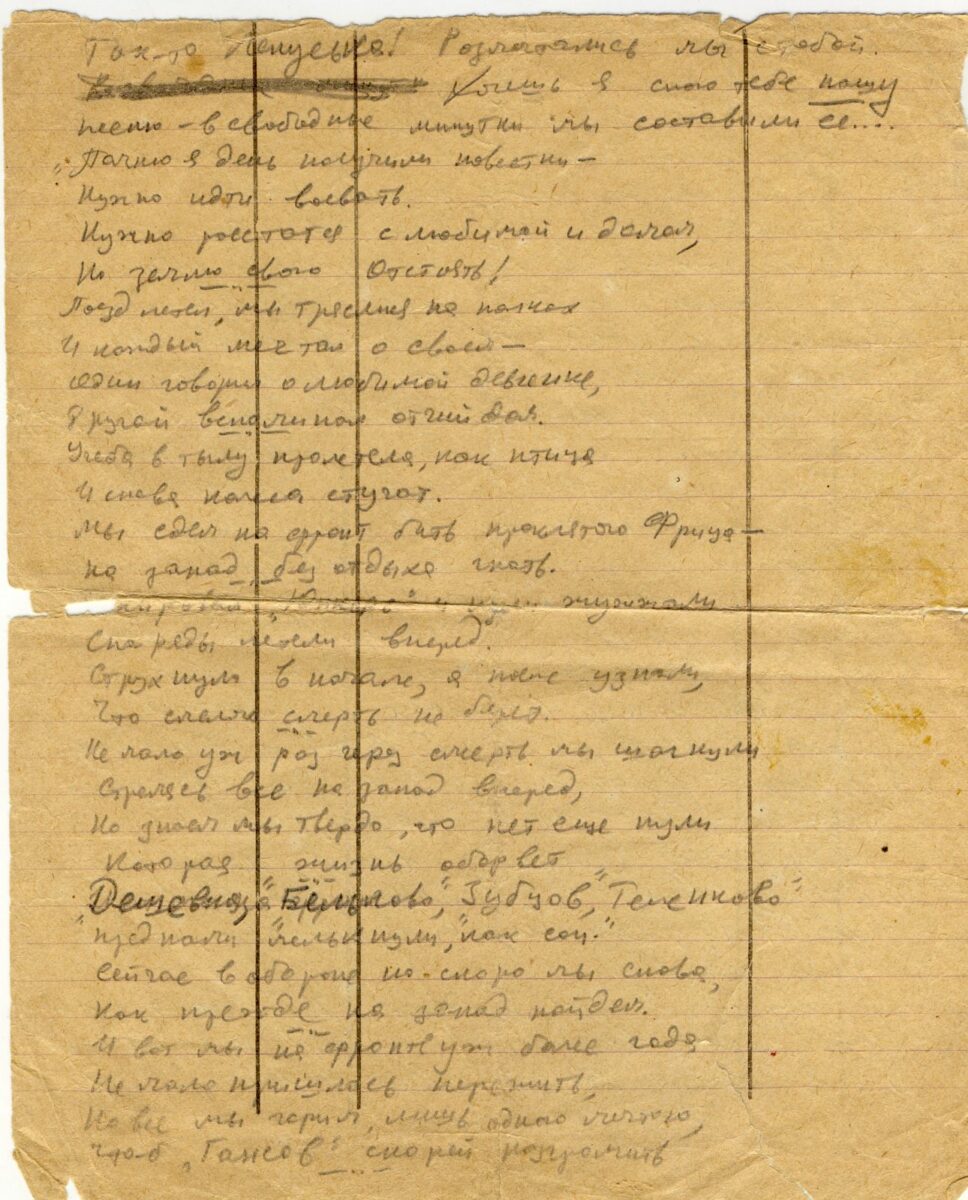 Так-то Ленуська! Размечтались мы с тобой.
Хочешь я спою тебе нашу
песню – в свободные минутки мы составили её....
"Помню я день получили повестки –
Нужно идти воевать.
Нужно расстатся с любимой и домом,
Но землю свою отстоять!
Поезд летел, мы тряслися на полках
И каждый мечтал о своем –
один говорил о любимой девченке,
Другой вспоминал отчий дом.
Учеба в тылу пролетела, как птица
И снова колеса стучат.
Мы едем на фронт бить проклятого Фрица –
на запад, без отдыха гнать.
"Юнкерс" и пули жужжали
Снаряды летели вперед.
Струхнули в начале, а после узнали,
Что смелых смерть не берет.
Не мало уж раз через смерть мы шагнули
Стремясь все на запад вперед,
Но знаем мы твердо, что нет еще пули
Которая жизнь оборвет
"Дешевка", Зубцов,
пред нами мелькнули, "как сон."
Сейчас в обороне но скоро мы снова,
Как прежде на запад пойдем.
И вот мы на фронте уж более года
Не мало пришлось пережить,
Но все мы горим, лишь одною мечтою,
чтоб "Гансов" скорей разгромить